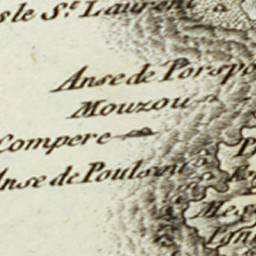 sle S.t Laurent
Anse de Porspo
Mouzou
Compere
Anse de Poulsou